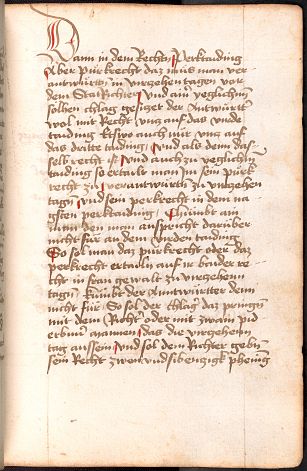 Dann in dem Rechten Perktaiding
Aber purkrecht daz mus man ver
antwurtn̄ in virzehen tagen vor
dem StatRichter Und am yeglichm̄
solhen chlag gesiget der Antwurtt
wol mit Recht untz auf das
taiding auch mit untz auf
das dritte taiding Und als dem das
selb recht ist Und auch zu yeglichm̄
taiding so ertailt man Im sein purk
recht zu verantwurtn̄ zu virzehen
tagn̄ Und sein perkrecht in dem na
gsten perktaiding Chumbt am
man den man anspricht darüber
nicht für an dem virden taiding
So sol man daz purkrecht oder daz
perkrecht ertailn̄ auf
cht in fran gewalt zu virzehenn
tagn̄ kumbt der Antwurtter denn
nicht für So sol der chlaḡ daz pringn̄
mit dem Richt̄ oder mit zwain pid
erbm̄ mannen das die virzehenn
tag aussein Und sol dem Richter gebn̄
sein Recht zwen und sibenzigk phenn̄g